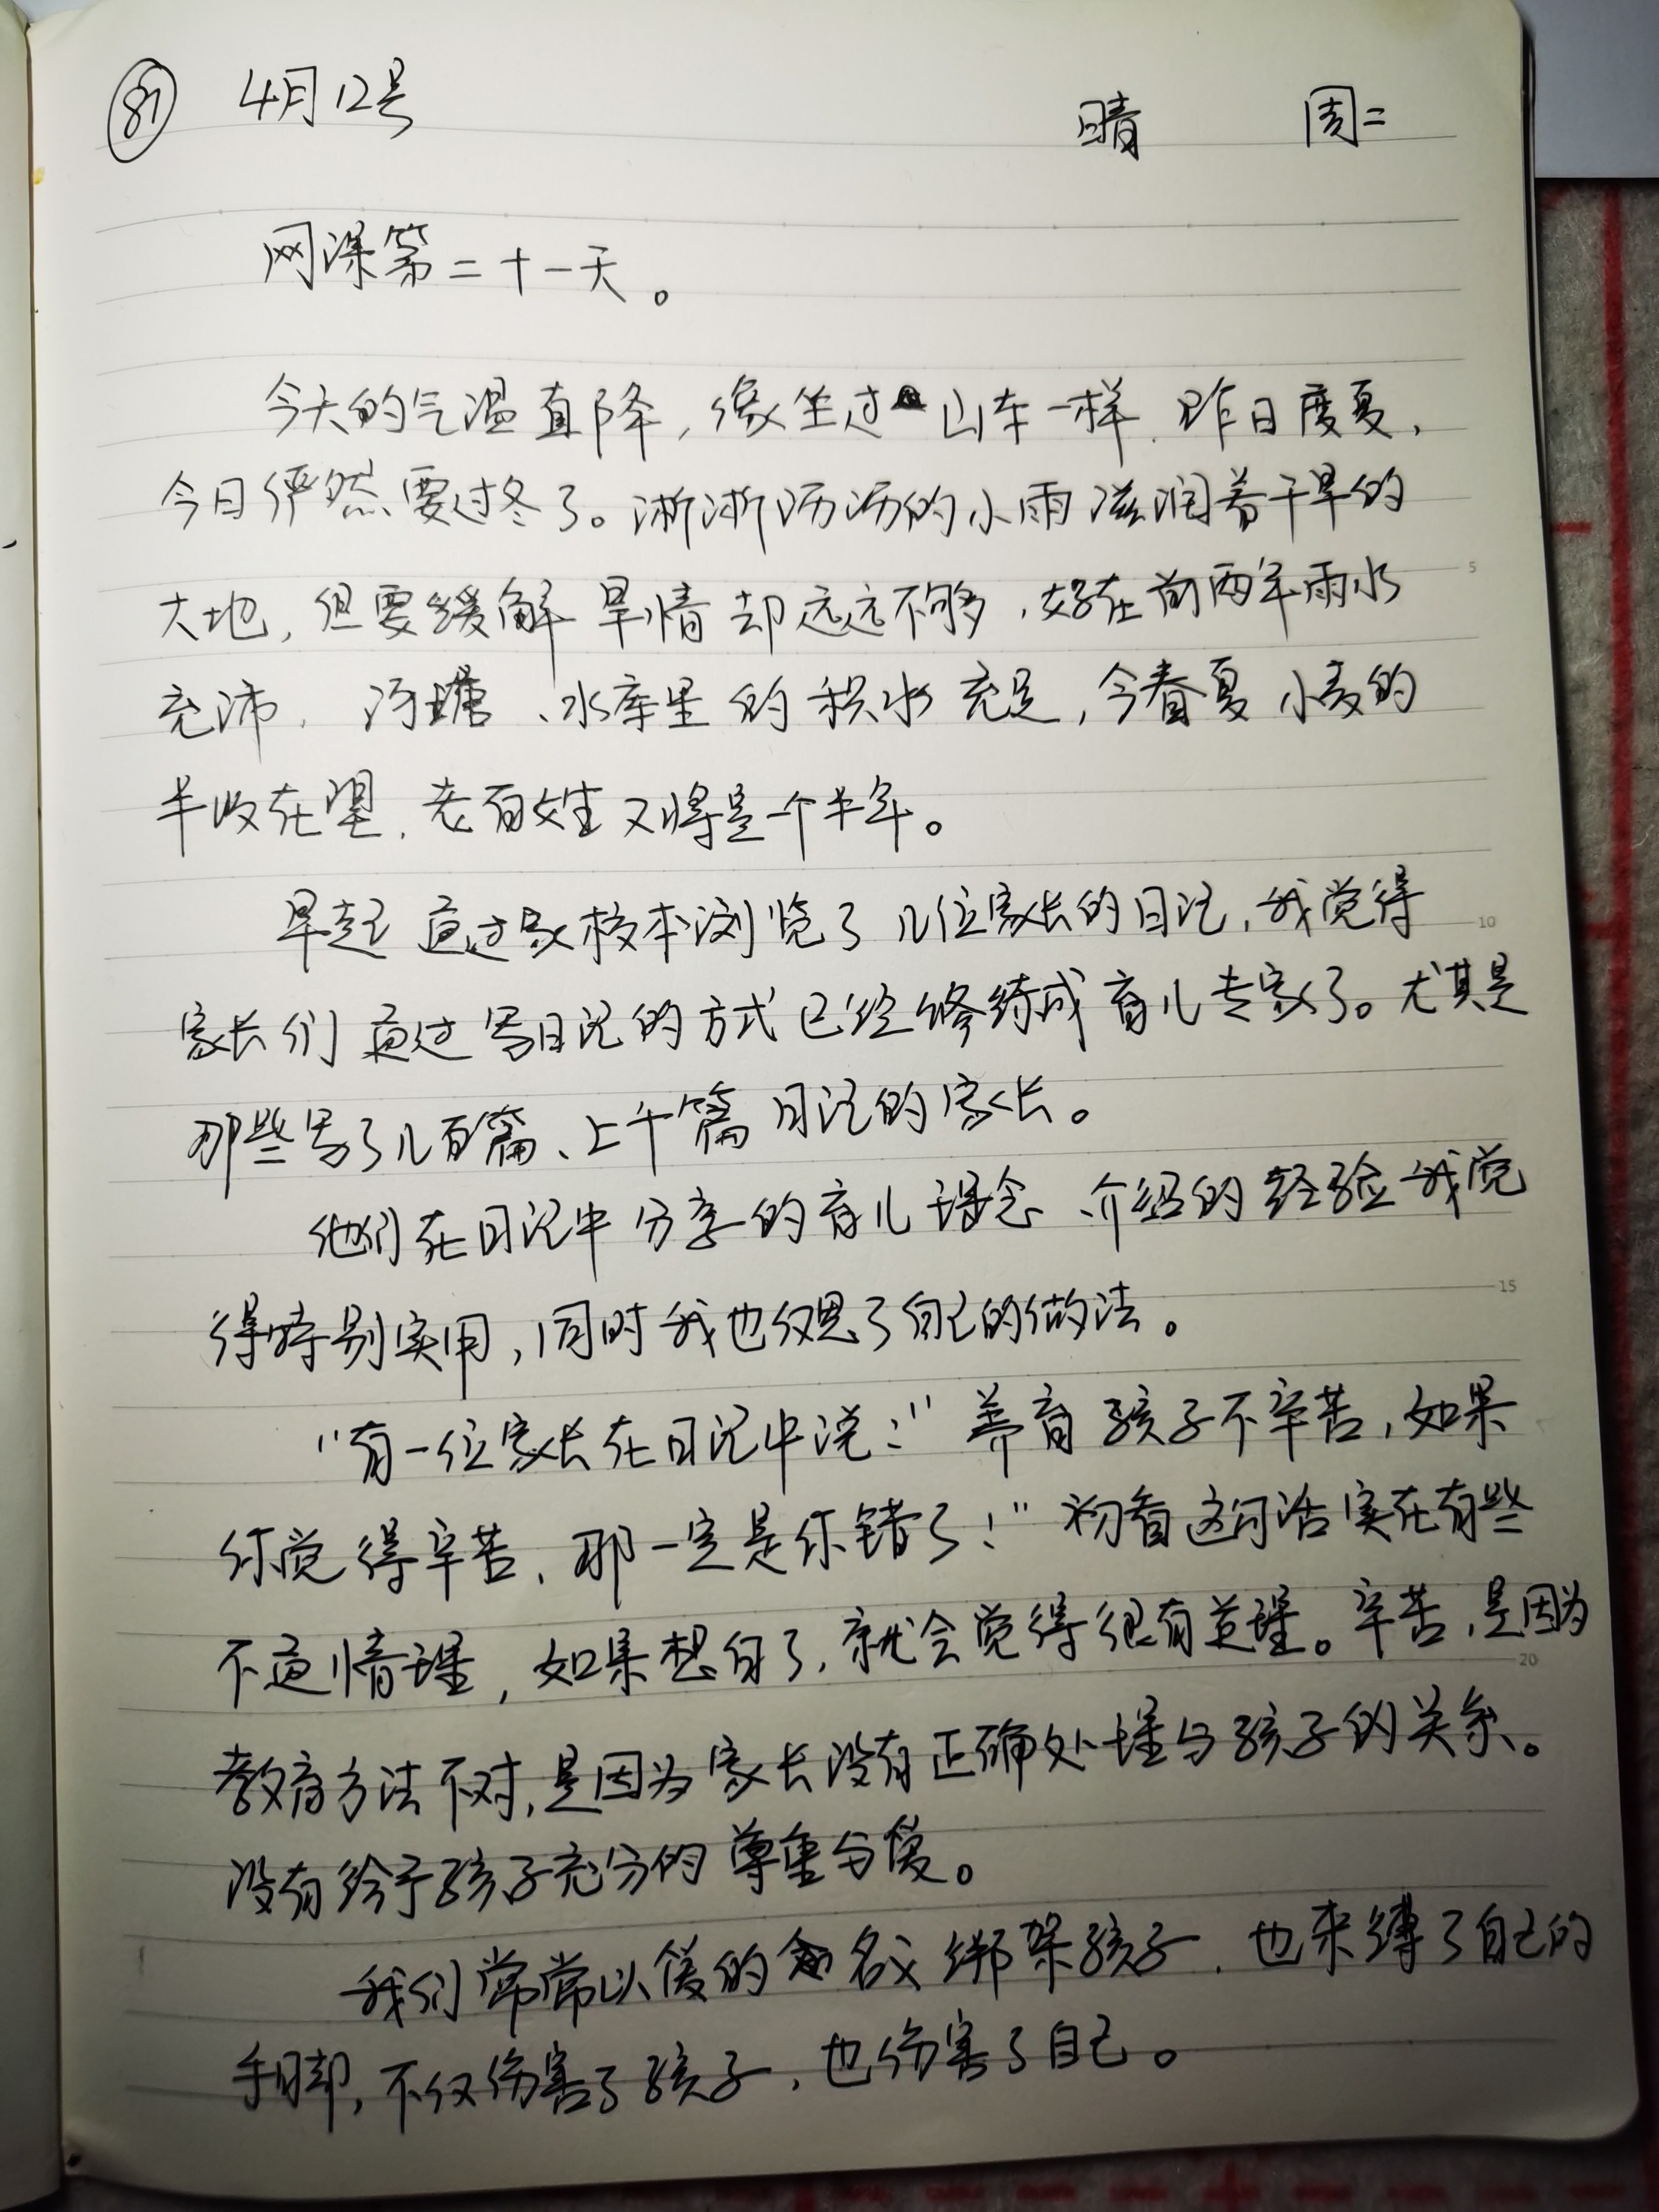 81 4月12号 晴 周二
网课第二十一天。
今天的气温直降,像坐过山车一样,昨日度夏,
今日俨然要过冬了。淅淅沥沥的小雨滋润着干旱的
大地,但要缓解旱情却远远不够,好在前两年雨水
充沛,河塘、水库里的积水充足,今春夏小麦的
丰收在望,老百姓又将是一个丰年。
早起通过家校本浏览了几位家长的日记,我觉得
家长们通过写日记的方式已经修练成育儿专家了。尤其是
那些写了几百篇、上千篇日记的家长。
他们在日记中分享的育儿理念、介绍的经验我觉
得特别实用,同时我也反思了自己的做法。
“有一位家长在日记中说:“养育孩子不辛苦,如果
你觉得辛苦,那一定是你错了!”初看这句话实在有些
不通情理,如果想白了,就会觉得很有道理。辛苦,是因为
教育方法不对,是因为家长没有正确处理与孩子的关系。
没有给予孩子充分的尊重与爱。
我们常常以爱的名义绑架孩子,也束缚了自己的
手脚,不仅伤害了孩子,也伤害了自己。
5
10
15
20